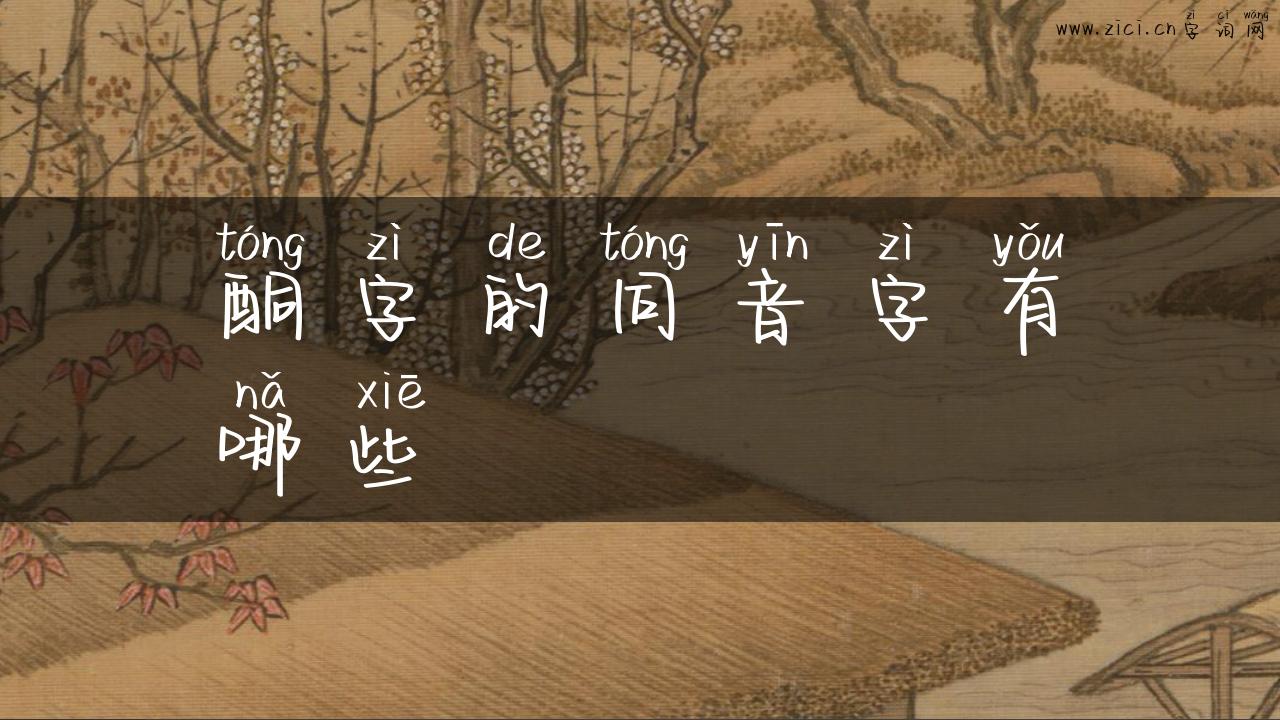 www.zici.cn
zì cí wǎng
字词网
tóng zì de tóng yīn zì yǒu
酮字的同音字有
nǎ xiē
哪些